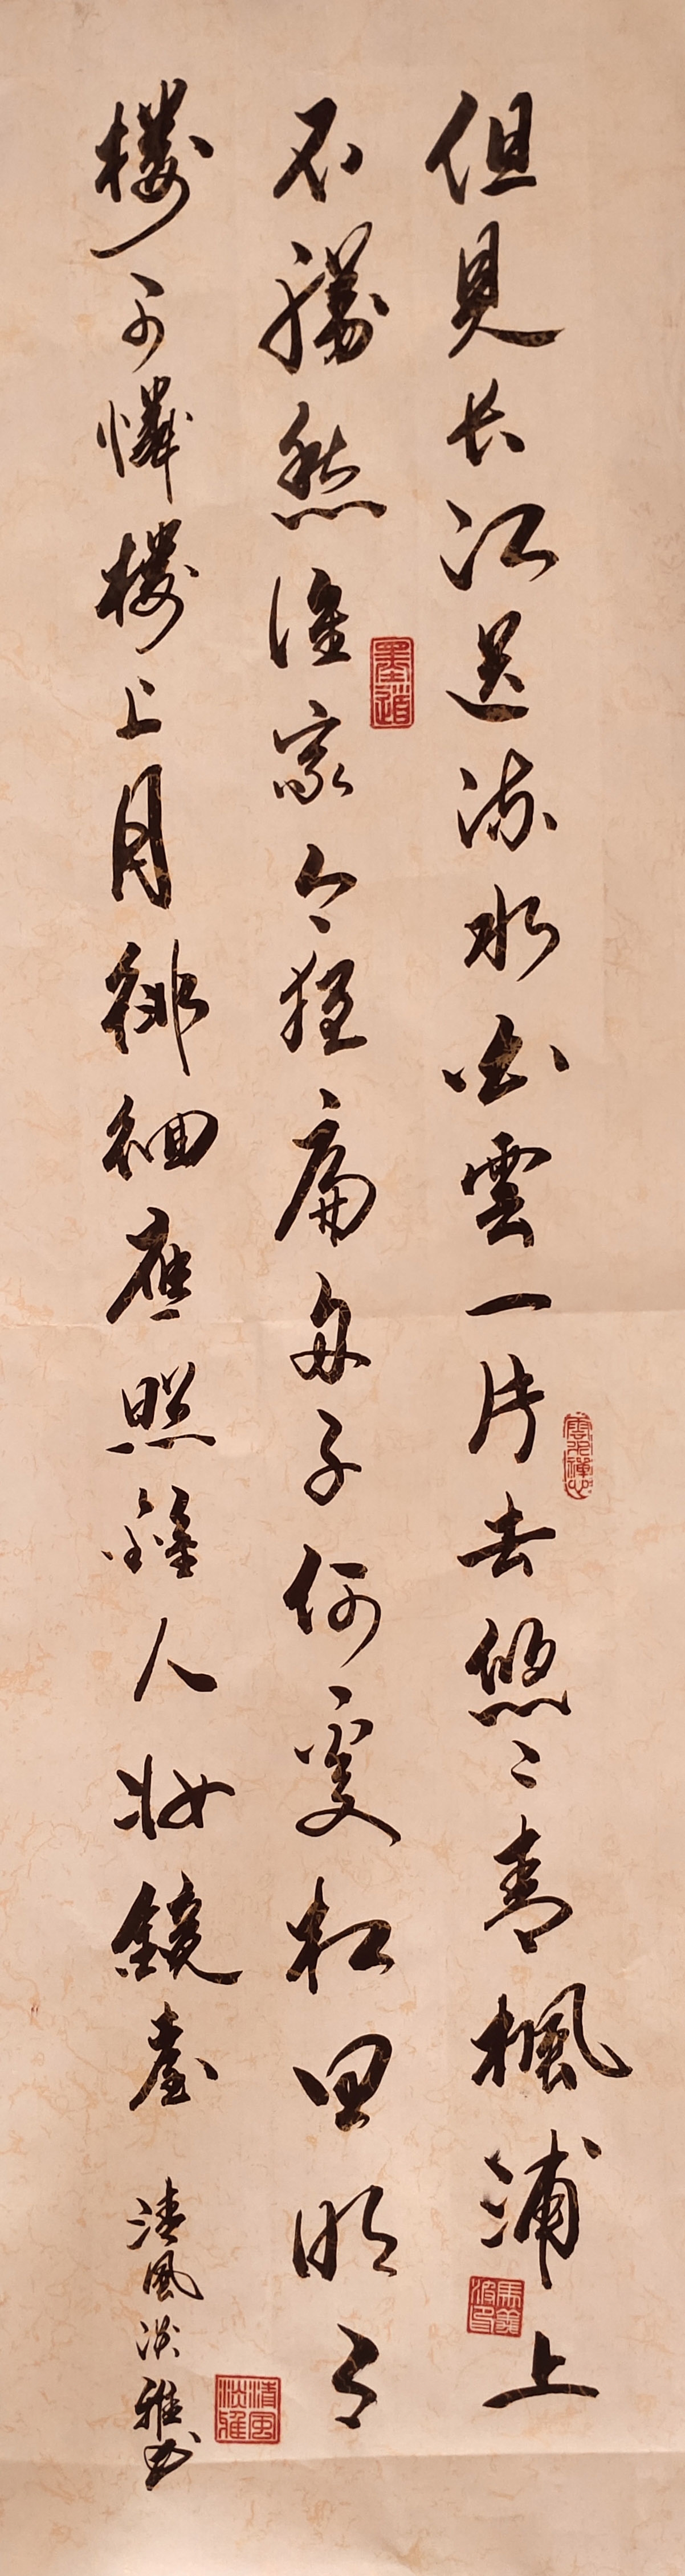 但見长江送流水白雲一片去悠々青楓浦上
不勝愁谁家今夜扁舟子何處相思明月
樓可憐樓上月徘徊應照離人妝鏡臺
清風淡雅书
墨道
清風淡雅